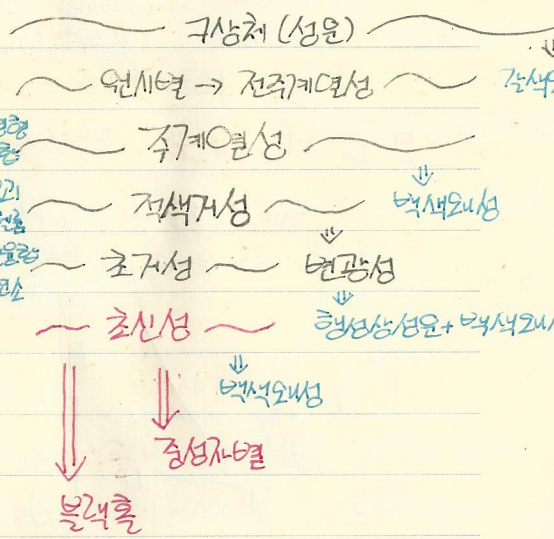 구상체 (성운)
원시별 → 전주계열성
주계열성
적색거성 백색왜성
초거성 변광성
초신성 행성상성운+백색왜
백색왜성
중성자별
블랙홀